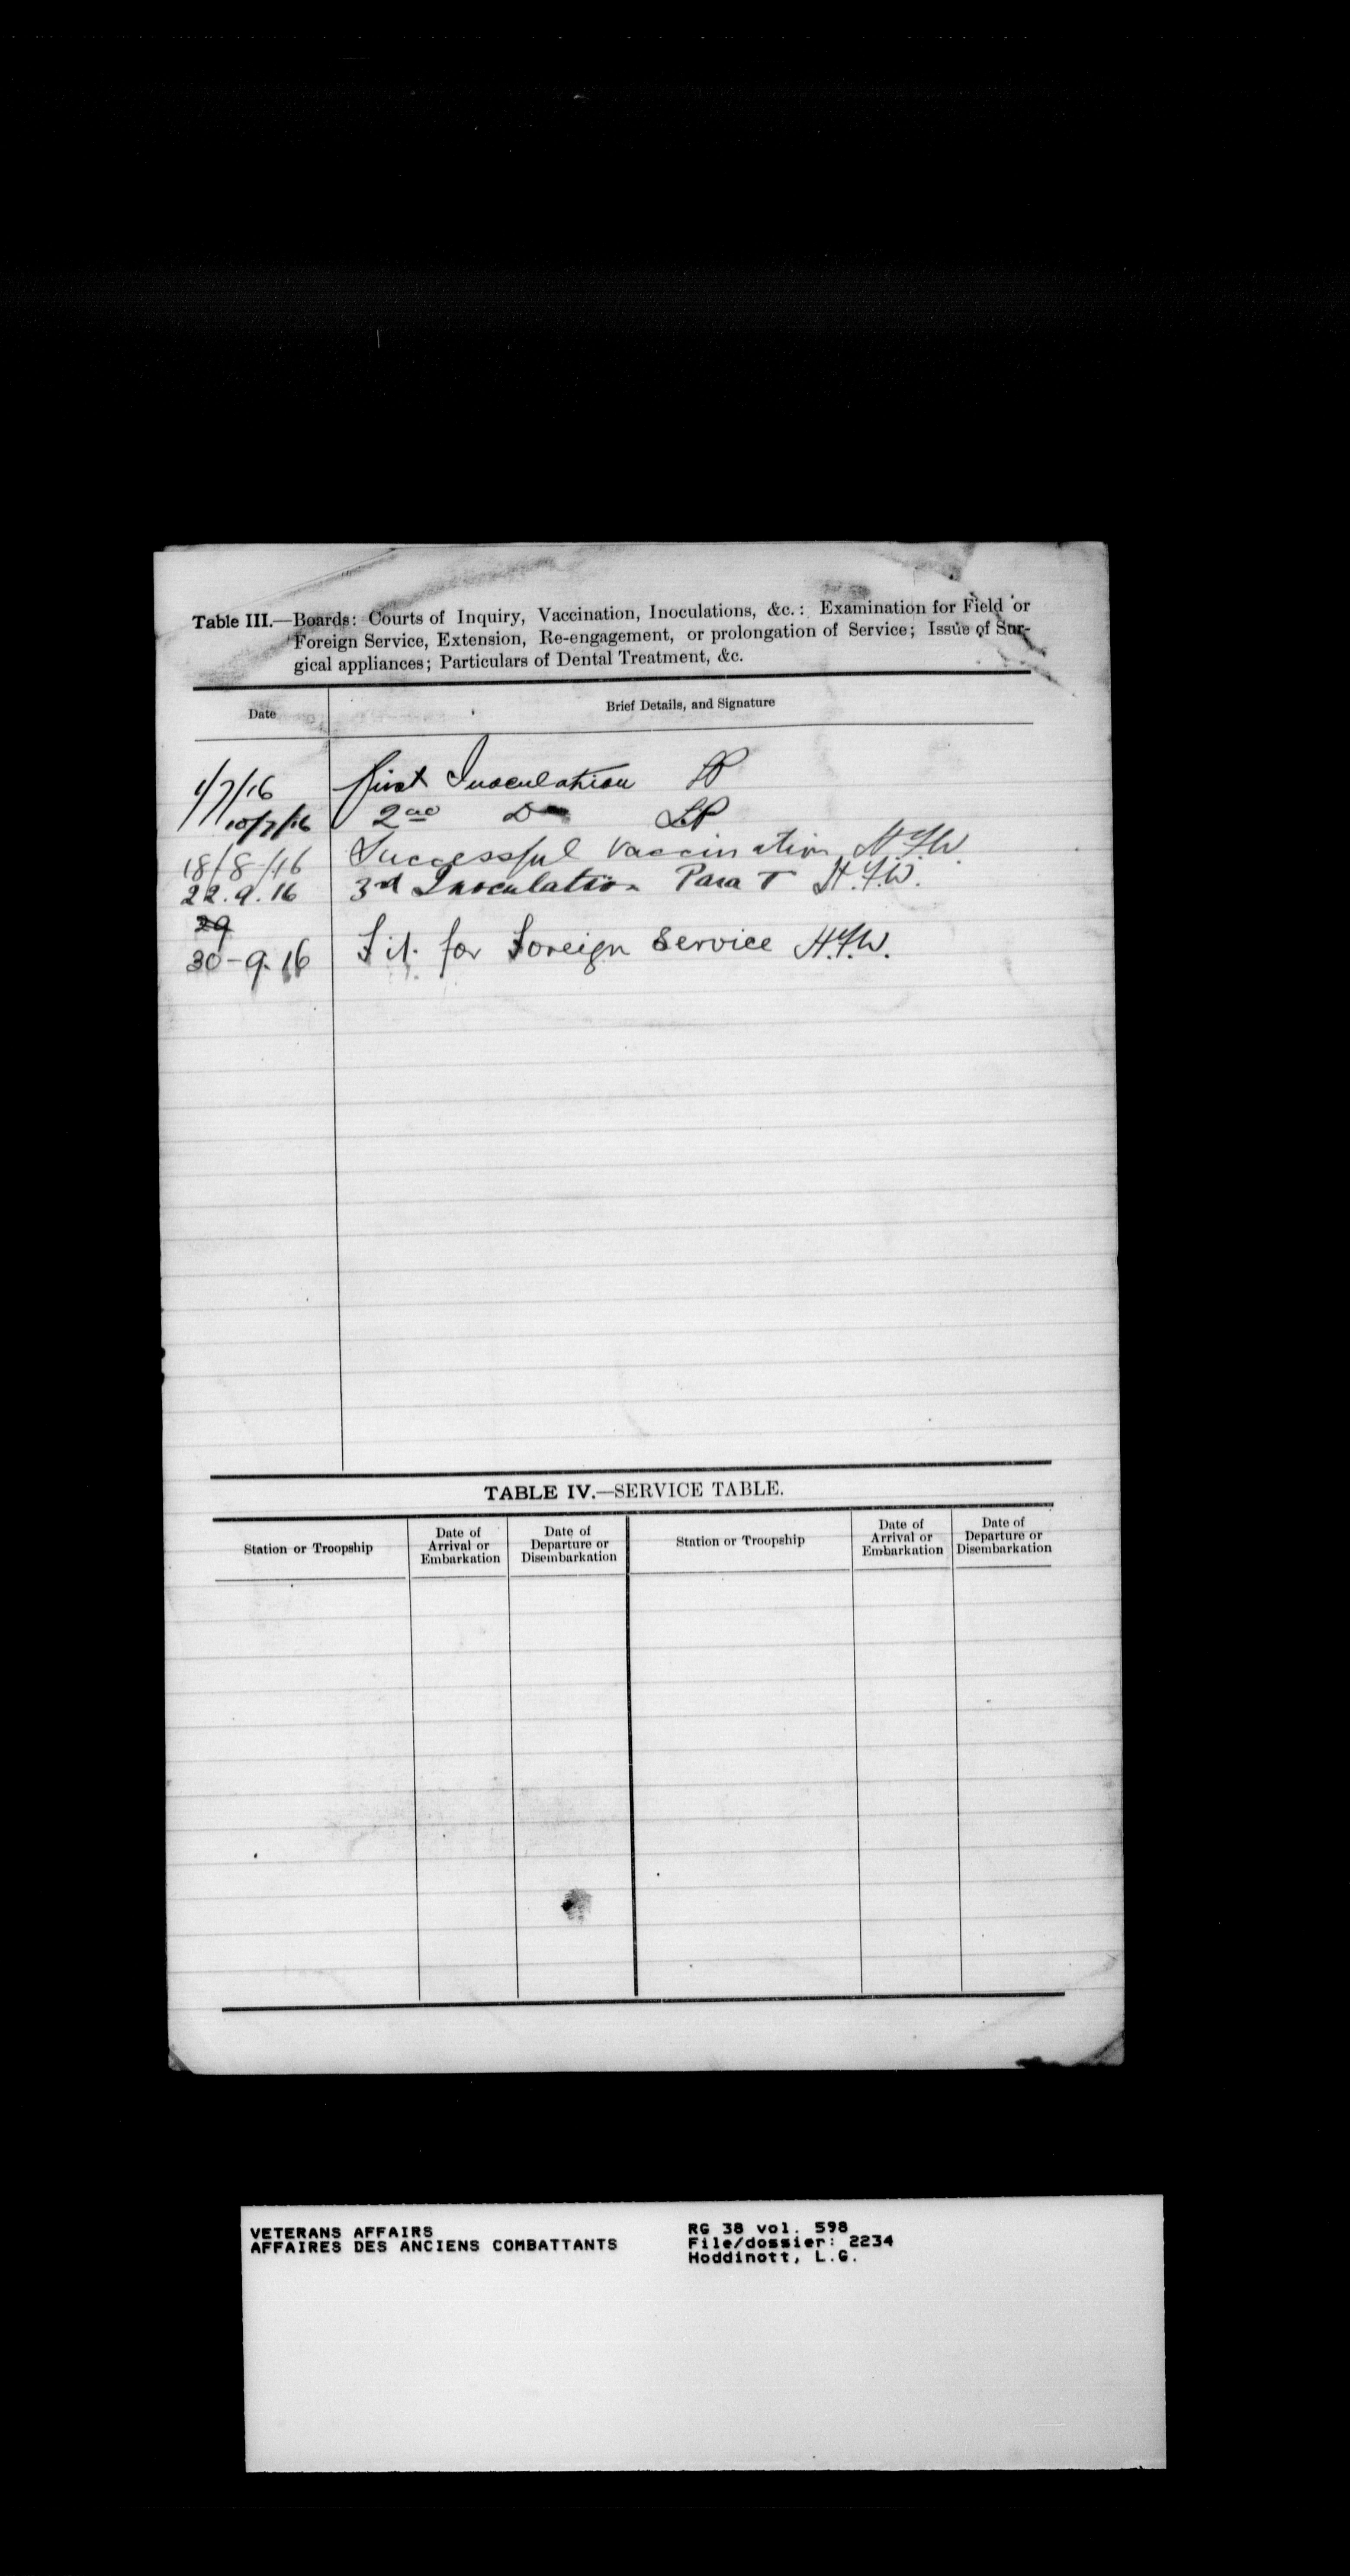 Table III.—Boards: Courts of Inquiry, Vaccination, Inoculations, &c.: Examination for Field or
Foreign Service, Extension, Re-engagement, or prolongation of Service; Issue of Sur-
gical appliances; Particulars of Dental Treatment, &c.
Date Brief Details, and Signature
1/7/16 first Inoculation LP
10/7/16 2nd Do LP
18/8/16 Successful Vaccination H.F.W.
22.9.16 3rd Inoculation Para T H.F.W.
29
30-9.16 Fit for Foreign Service H.F.W.
TABLE IV.—SERVICE TABLE.
Station or Troopship Date of Arrival or Embarkation Date of Departure or Disembarkation Station or Troopship Date of Arrival or Embarkation Date of Departure or Disembarkation
VETERANS AFFAIRS RG 38 vol. 598
AFFAIRES DES ANCIENS COMBATTANTS File/dossier: 2234
Hoddinott, L.G.